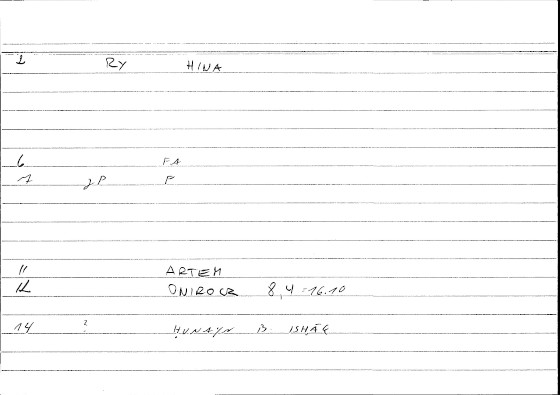 1 RY HINA
6 FA
7 2P F
11 ARTEM
12 ONIROCR 8,4 = 16.10
14 ? ḤUNAYN B ISḤĀQ